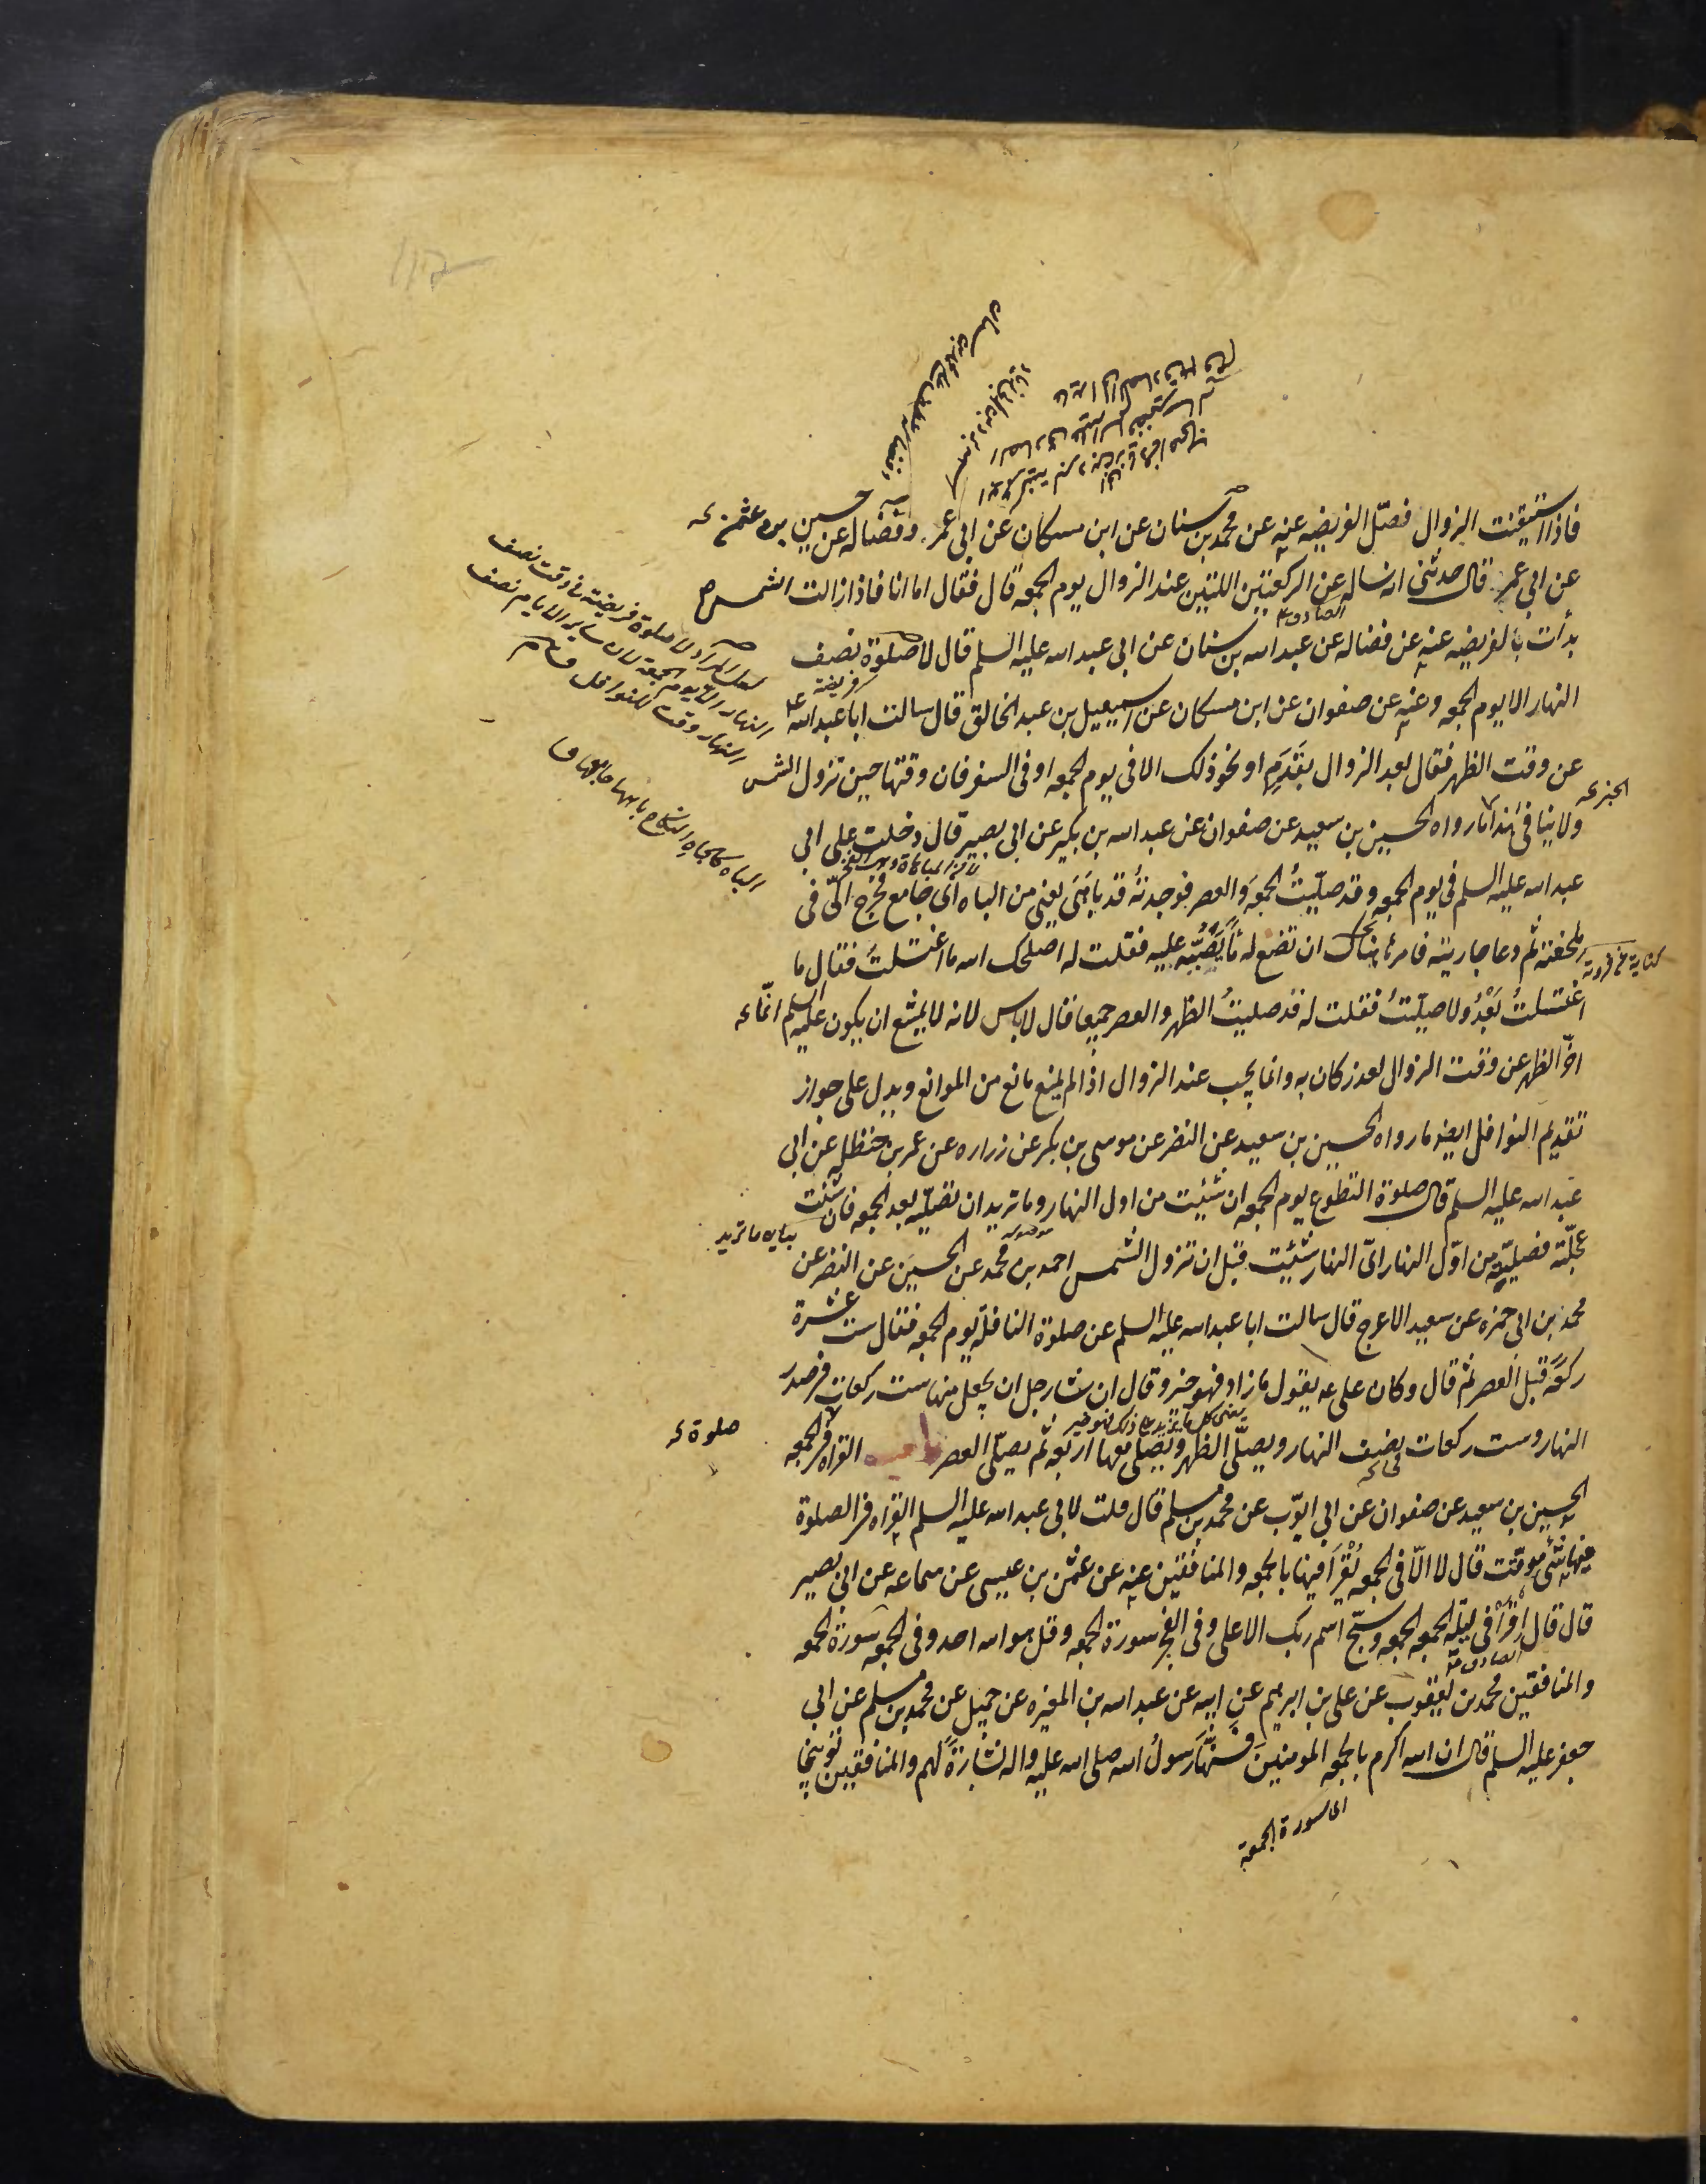 فاذا استيقنت الزوال فصلّ الفريضه عنه عن محمد بن سنان عن ابن مسكان عن ابى عمر وفضاله عن حسين بن عثمن
عن ابى عمر قال حدثنى انه ساله عن الركعتين اللتين عند الزوال يوم الجمعه قال فقال اما انا فاذا زالت الشمس
بدأت بالفريضه عنه عن فضاله عن عبد الله بن سنان عن ابى عبد الله عليه السلم قال لا صلوة نصف
النهار الا يوم الجمعه وعنه عن صفوان عن ابن مسكان عن اسمعيل بن عبد الخالق قال سالت ابا عبد الله ع
عن وقت الظهر فقال بعد الزوال بقَدَمٍ او نحو ذلك الا فى يوم الجمعه او فى السفر فان وقتها حين تزول الشمس
ولا ينافى هذا ما رواه الحسين بن سعيد عن صفوان عن عبد الله بن بكير عن ابى بصير قال دخلت على ابى
عبد الله عليه السلم فى يوم الجمعه وقد صليّتُ الجمعَه والعصر فوجدتهُ قد باهَىَ يعنى من الباه اى جامع فخرج الىّ فى
ملحفته ثم دعا جاريته فامرها ان تضع له ماءً يَصُبّه عليه فقلت له اصلحك الله ما اغتسلتَ فقال ما
اغتسلتُ بَعْدُ ولا صليّتُ فقلت له قد صليتُ الظهر والعصر جميعا قال لا باس لانه لا يمتنع ان يكون عليه السلم انّما
اخّر الظهر عن وقت الزوال لعذر كان به وانما يجب عند الزوال اذا لم يمنع مانع من الموانع ويدل على جواز
تقديم النوافل ايضا ما رواه الحسين بن سعيد عن النضر عن موسى بن بكر عن زراره عن عمر بن حنظله عن ابى
عبد الله عليه السلم قال صلوة التطوع يوم الجمعه ان شئت من اول النهار وما تريد ان تصليّه بعد الجمعه فان شئت
عجّلته فصليّته من اوّل النهار اىّ النهار شئت قبل ان تزول الشمس احمد بن محمد عن الحسين عن النضر عن
محمد بن ابى حمزه عن سعيد الاعرج قال سالت ابا عبد الله عليه السلم عن صلوة النافلة يوم الجمعه فقال ست عشرة
ركعَةً قبل العصر ثم قال وكان على ع يقول ما زاد فهو خير وقال ان شا رجل ان يجعل منها ست ركعات فى صدر
النهار وست ركعات نصف النهار ويصلّى الظهر ويصلى معها اربعَه ثم يصلّى العصر القراه فى الجمعه
الحسين بن سعيد عن صفوان عن ابى ايوّب عن محمد بن مسلم قال قلت لابى عبد الله عليه السلم القراه فى الصلوة
فيها شئ موقّت قال لا الاّ فى الجمعه تُقْرَأ فيها بالجمعه والمنافقين عنه عن عثمن بن عيسى عن سماعه عن ابى بصير
قال قال اِقْرَأ فى ليلة الجمعه الجمعه وسبّح اسم ربك الاعلى وفى الفجر سورة الجمعه وقل هو الله احد وفى الجمعه سورة الجمعه
والمنافقين محمد بن يعقوب عن على بن ابرهيم عن ابيه عن عبد الله بن المغيره عن جميل عن محمد بن مسلم عن ابى
جعفر عليه السلم قال ان الله اكرم بالجمعه المومنين فَسَنّها رسولُ الله صلى الله عليه واله بشارَةً لهم والمنافقين توبيخا
الصادق ع
فريضة
لعل المراد لا صلوة فريضة فى وقت نصف
النهار الا يوم الجمعة لان ساير الايام نصف
النهار وقت للنوافل
الباه كالجاه النكاح باهها جامعها ق
كناية عن
بيان ما تريد
صلوة
اى سورة الجمعة